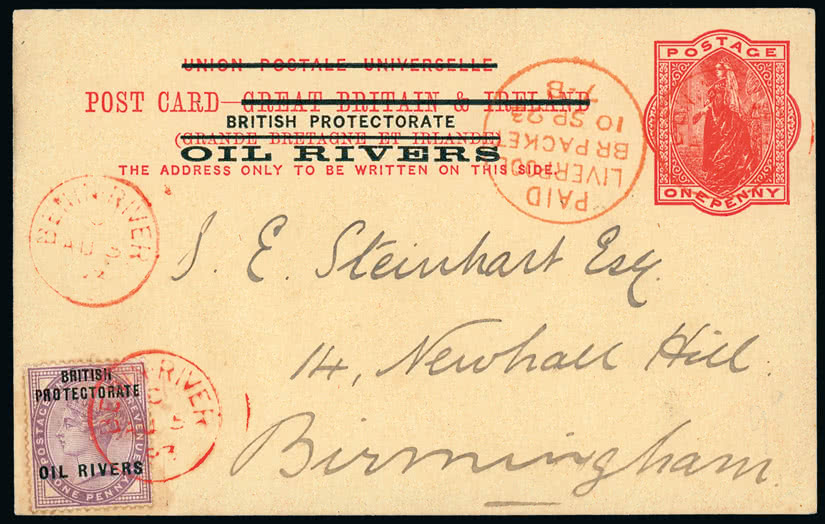 UNION POSTALE UNIVERSELLE
POST CARD—GREAT BRITAIN & IRELAND
BRITISH PROTECTORATE
(GRANDE BRETAGNE ET IRLANDE)
OIL RIVERS
THE ADDRESS ONLY TO BE WRITTEN ON THIS SIDE.
POSTAGE
ONE PENNY
PAID
LIVERPOOL
BR PACKET
10 SP 23
7-B
BENIN RIVER
AU
S. E. Steinhart Esq.
14, Newhall Hill
Birmingham.
BRITISH
PROTECTORATE
OIL RIVERS
POSTAGE
REVENUE
ONE PENNY
RIVER